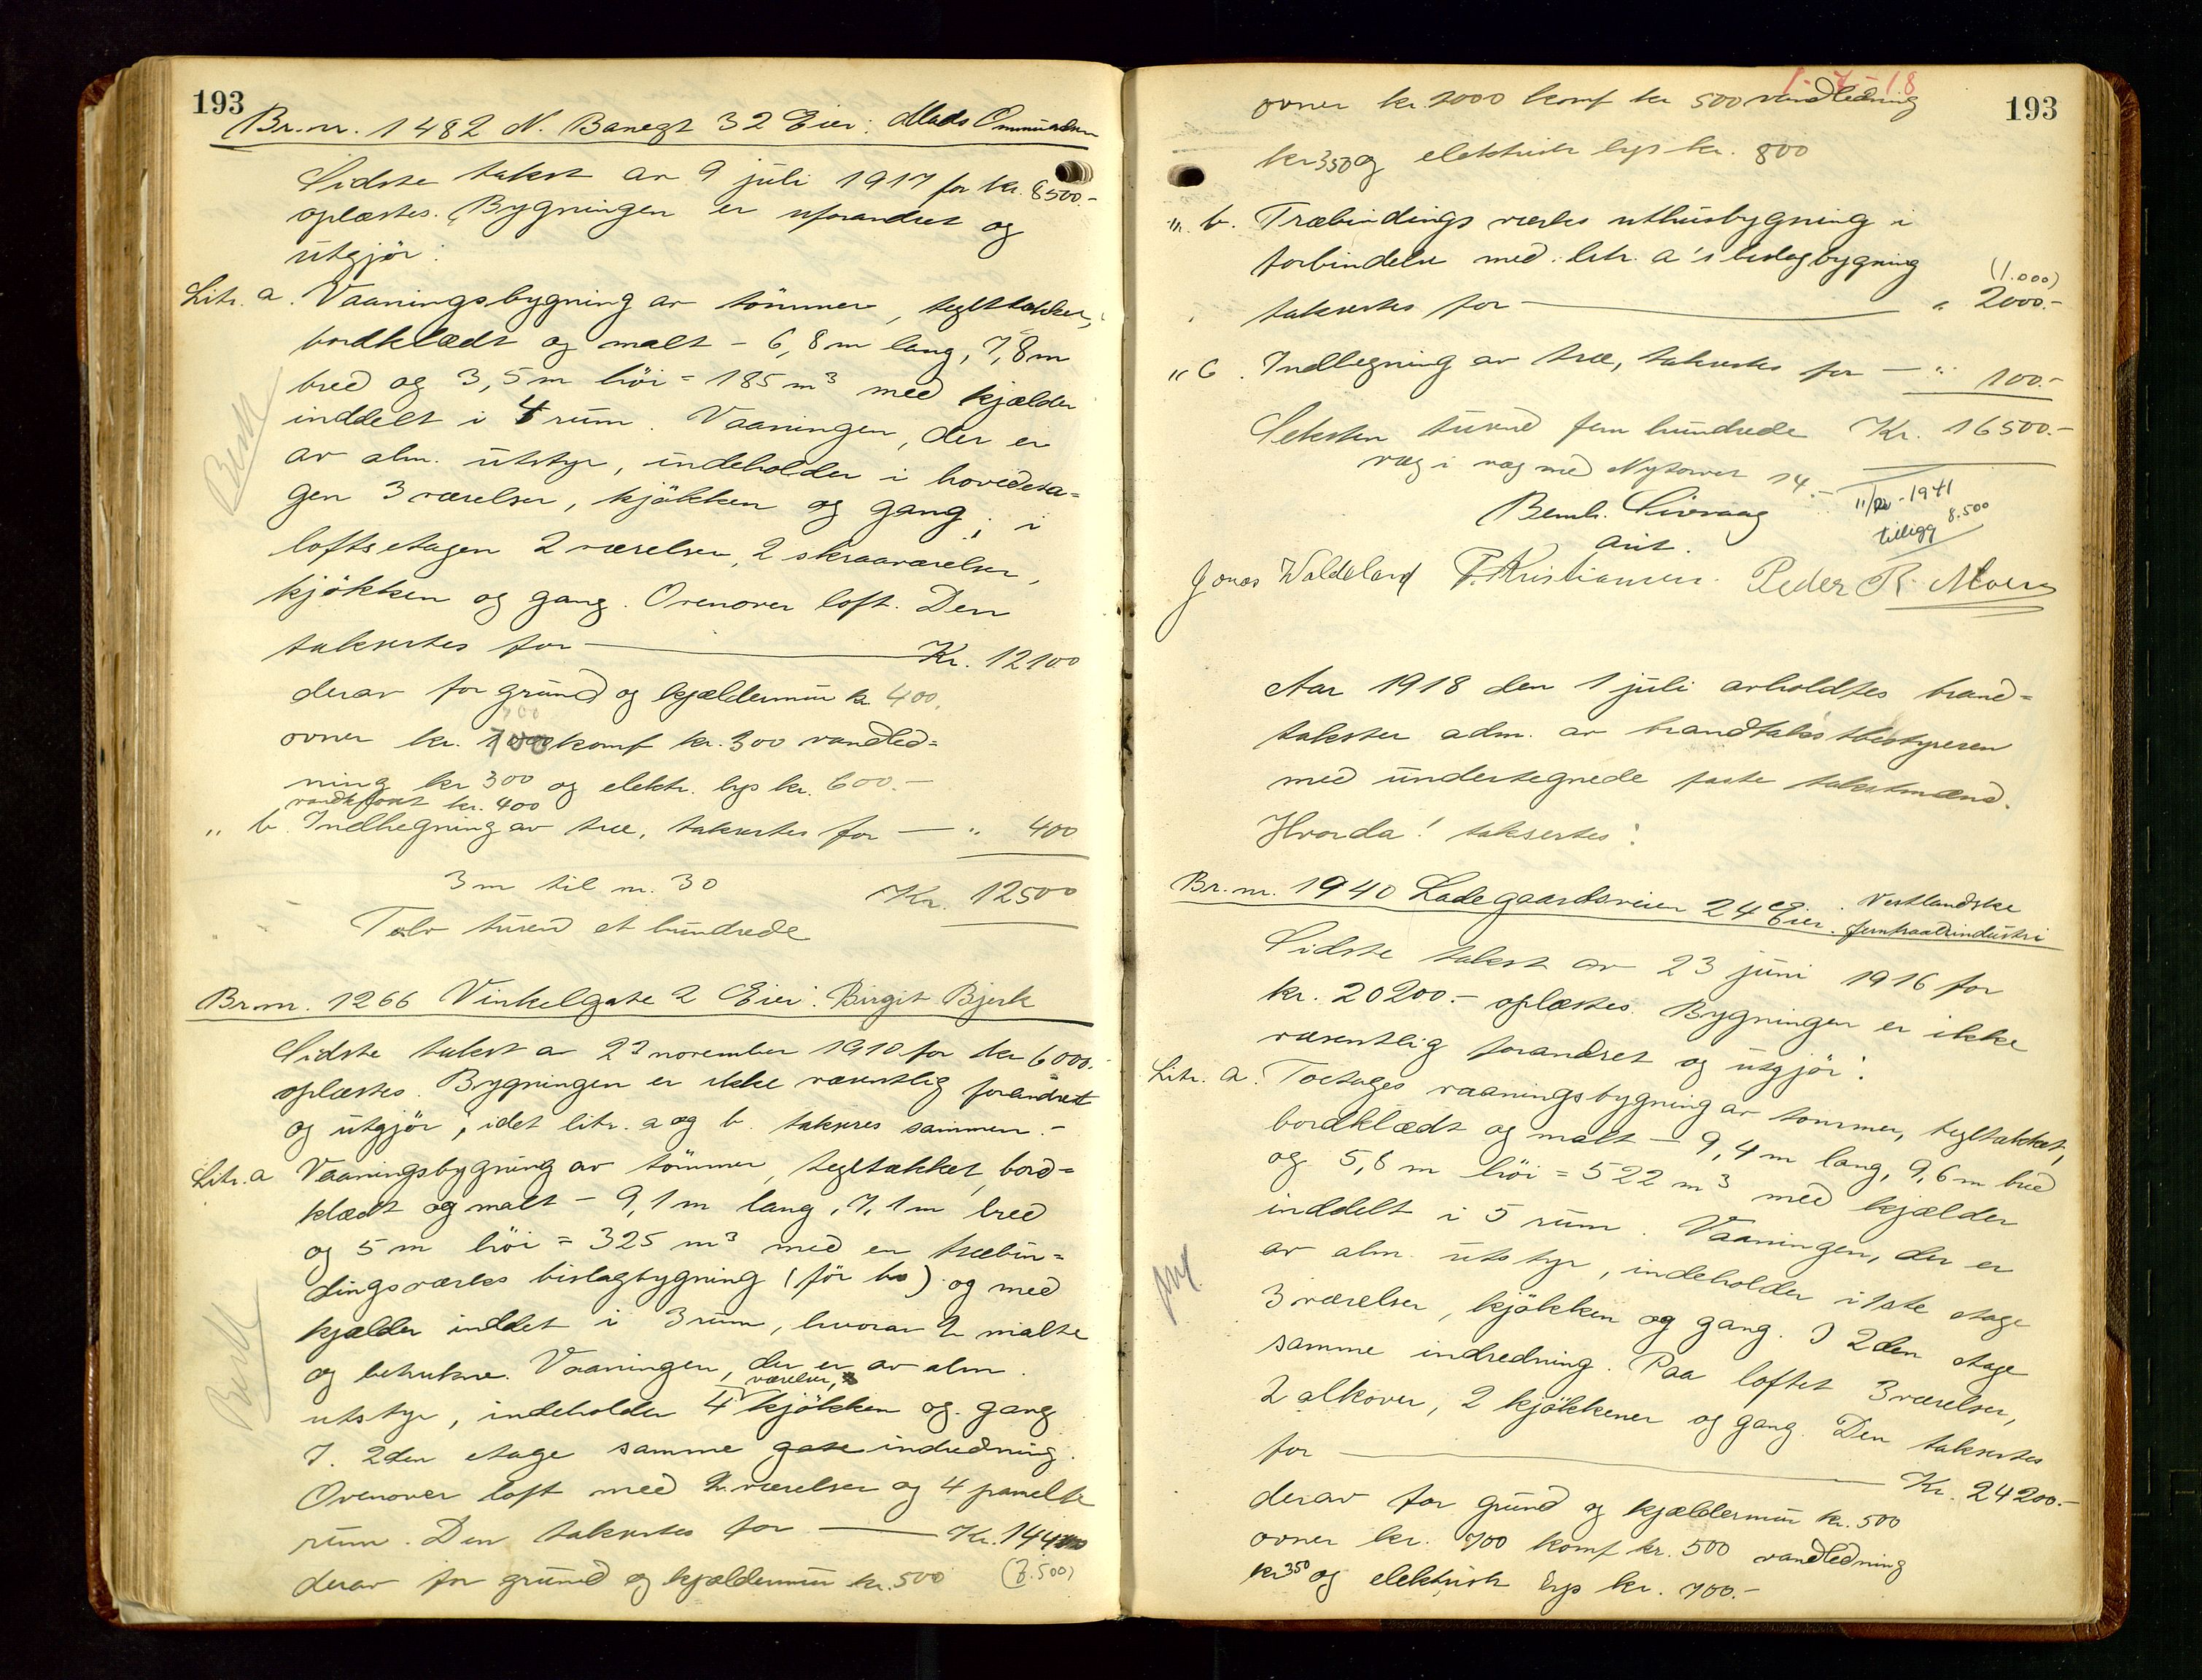 193
Br.nr. 1482 N. Banegt 32 Eier: Mads Ommundsen
Sidste takst av 9 juli 1917 for kr. 8500.-
oplæstes. Bygningen er uforandret og
utgjör:
Litr. a. Vaaningsbygning av tömmer, teglttækket,
bordklædt og malt - 6,8 m lang, 7,8 m
bred og 3,5 m höi = 185 m³ med kjælder
inddelt i 4 rum. Vaaningen, der er
av alm. utstyr, indeholder i hovedeta=
gen 3 værelser, kjökken og gang; i
loftsetagen 2 værelser, 2 skraaværelser,
kjökken og gang. Ovenover loft. Den
taksertes for — Kr. 12100
derav for grund og kjældermur kr 400.
ovner kr. 700 komf kr. 300 vandled=
ning kr 300 og elektr. lys kr. 600.-
kr. 400
" b. Indhegning av træ, taksertes for — " 400
3 m til nr. 30 Kr. 12500
Tolv tusend et hundrede
Br.nr. 1266 Vinkelgate 2 Eier: Birgit Bjerk
Sidste takst av 23 november 1910 for kr 6000.-
oplæstes. Bygningen er ikke væsentlig forandret
og utgjör, idet litr. a og b. takseres sammen.-
Litr. a Vaaningsbygning av tömmer, tegltækket, bord=
klædt og malt - 9,1 m lang, 7,1 m bred
og 5 m höi = 325 m³ med en træbin=
dingsværks bislagbygning (för b) og med
kjælder inddet i 3 rum, hvorav 2 malte
og betrukne. Vaaningen, der er av alm.
værelser,
utstyr, indeholder 4 kjökken og gang
I. 2den etage samme gate indredning.
Ovenover loft med 2 værelser og 4 panelte
rum. Den taksertes for — Kr. 14400
derav for grund og kjældermur kr. 500 (3.500)
1-7-18
193
ovner kr. 1000 komf kr 500 vandledning
kr 350 og elektrisk lys kr. 800
" b. Træbindings værks uthusbygning i
forbindelse med litr. a's bislagbygning
(1.000)
taksertes for — " 2000.-
" c. Indhegning av træ, taksertes for — " 100.-
Seksten tusend fem hundrede Kr. 16500.-
væg i væg med Nytorvet 14.-
11/12-1941
tillegg 8.500
Bernh. Siveraag
ass.
Jonas Waldeland T. Kristiansen. Peder R. Moen
Aar 1918 den 1 juli avholdtes brand=
takster adm. av brandtakstbestyreren
med undertegnede faste takstmænd.
Hvorda! taksertes:
Br.nr. 1940 Ladegaardsveien 24 Eier: Vestlandske
Jerntraadindustri
Sidste takst av 23 juni 1916 for
kr. 20200.- oplæstes. Bygningen er ikke
væsentlig forandret og utgjör:
Litr. a. Toetages vaaningsbygning av tömmer, tegltækket,
bordklædt og malt - 9,4 m lang, 9,6 m bred
og 5,8 m höi = 522 m³ med kjælder
inddelt i 5 rum. Vaaningen, der er
av alm. utstyr, indeholder i 1ste etage
3 værelser, kjökken og gang. I 2den etage
samme indredning. Paa loftet 3 værelser,
2 alkover, 2 kjökkener og gang. Den taksertes
for — Kr. 24200.-
derav for grund og kjældermur kr. 500
ovner kr. 700 komf kr. 500 vandledning
kr 350 og elektrisk lys kr. 700.-